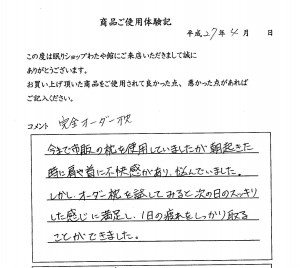 商品ご使用体験記
平成27年4月　日
この度は眠りショップわたや館にご来店いただきまして誠に
ありがとうございます。
お買い上げ頂いた商品をご使用されて良かった点、悪かった点があれば
ご記入ください。
コメント 完全オーダー枕
今まで市販の枕を使用していましたが朝起きた
時に肩や首に不快感があり、悩んでいました。
しかし、オーダー枕を試してみると次の日のスッキリ
した感じに満足し、1日の疲れをしっかり取る
ことができました。